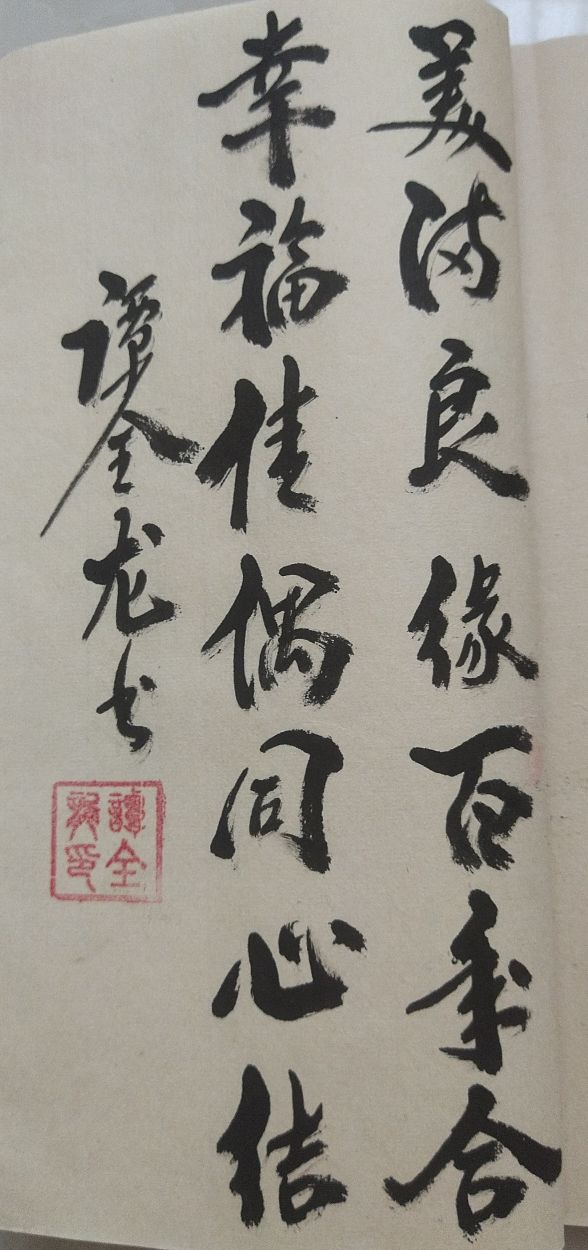 美满良缘百年合
幸福佳偶同心结
谭全龙书
譚全龍印